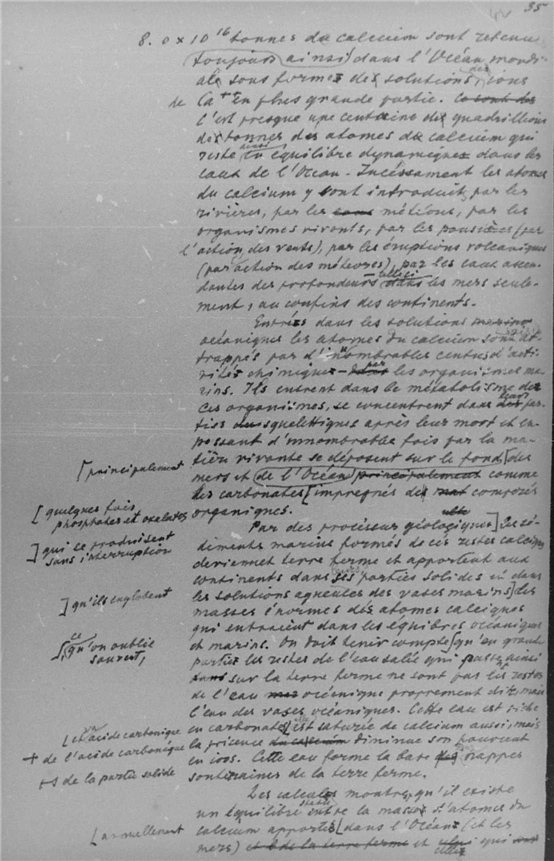 35
8.0 × 10^16 tonnes du calcium sont retenu
toujours ainsi dans l'Océan mondi-
al sous forme des solutions, ions
de Ca++ en plus grande partie.
C'est presque une centaine des quadrillions
des tonnes des atomes du calcium qui
reste en équilibre dynamique dans les
eaux de l'Océan. Incessament les atomes
du calcium y sont introduit, par les
rivières, par les météores, par les
organismes vivants, par les poussières (par
l'action des vents), par les éruptions volcaniques
(par action des météores), par les eaux ascen-
dantes des profondeurs dans les mers seule-
ment, au confins des continents.
Entrés dans les solutions
océaniques les atomes du calcium sont at-
trappés par d'innombrables centres d'acti-
vités chimiques par les organismes ma-
rins. Ils entrent dans le métabolisme de
ces organismes, se concentrent dans leurs par-
ties squelettiques après leur mort et en
passant d'innombrable fois par la ma-
tière vivante se déposent sur le fond des
[principalement
mers et de l'Océan principalement comme
des carbonates [imprégnés de composés
[quelques fois
phosphates et oxalates
organiques.
Par des processus géologiques] ces sé-
] qui se produisent
sans interruption
diments marins formés de ces restes calciques
deviennent terre ferme et apportent aux
continents dans ses parties solides et dans
les solutions aqueuses des vases marins] des
] qu'ils englobent
masses énormes des atomes calciques
qui entraient dans les équilibres océaniques
et marins. On doit tenir compte [qu'en grande
ce qu'on oublie
souvent,
partie les restes de l'eau salée qui passe ainsi
sur la terre ferme ne sont pas les restes
de l'eau océanique proprement dite mais
l'eau des vases océaniques. Cette eau est riche
en carbonates [est saturée de calcium aussi, mais
[et acide carbonique
la présence diminue son pouvoir
+ de l'acide carbonique
en ions. Cette eau forme la base des nappes
+ de la partie solide
souterraines de la terre ferme.
Les calculs montre, qu'il existe
un équilibre entre la masse d'atomes du
calcium apportés [dans l'Océan (et les
[annuellement
mers) et celle qui